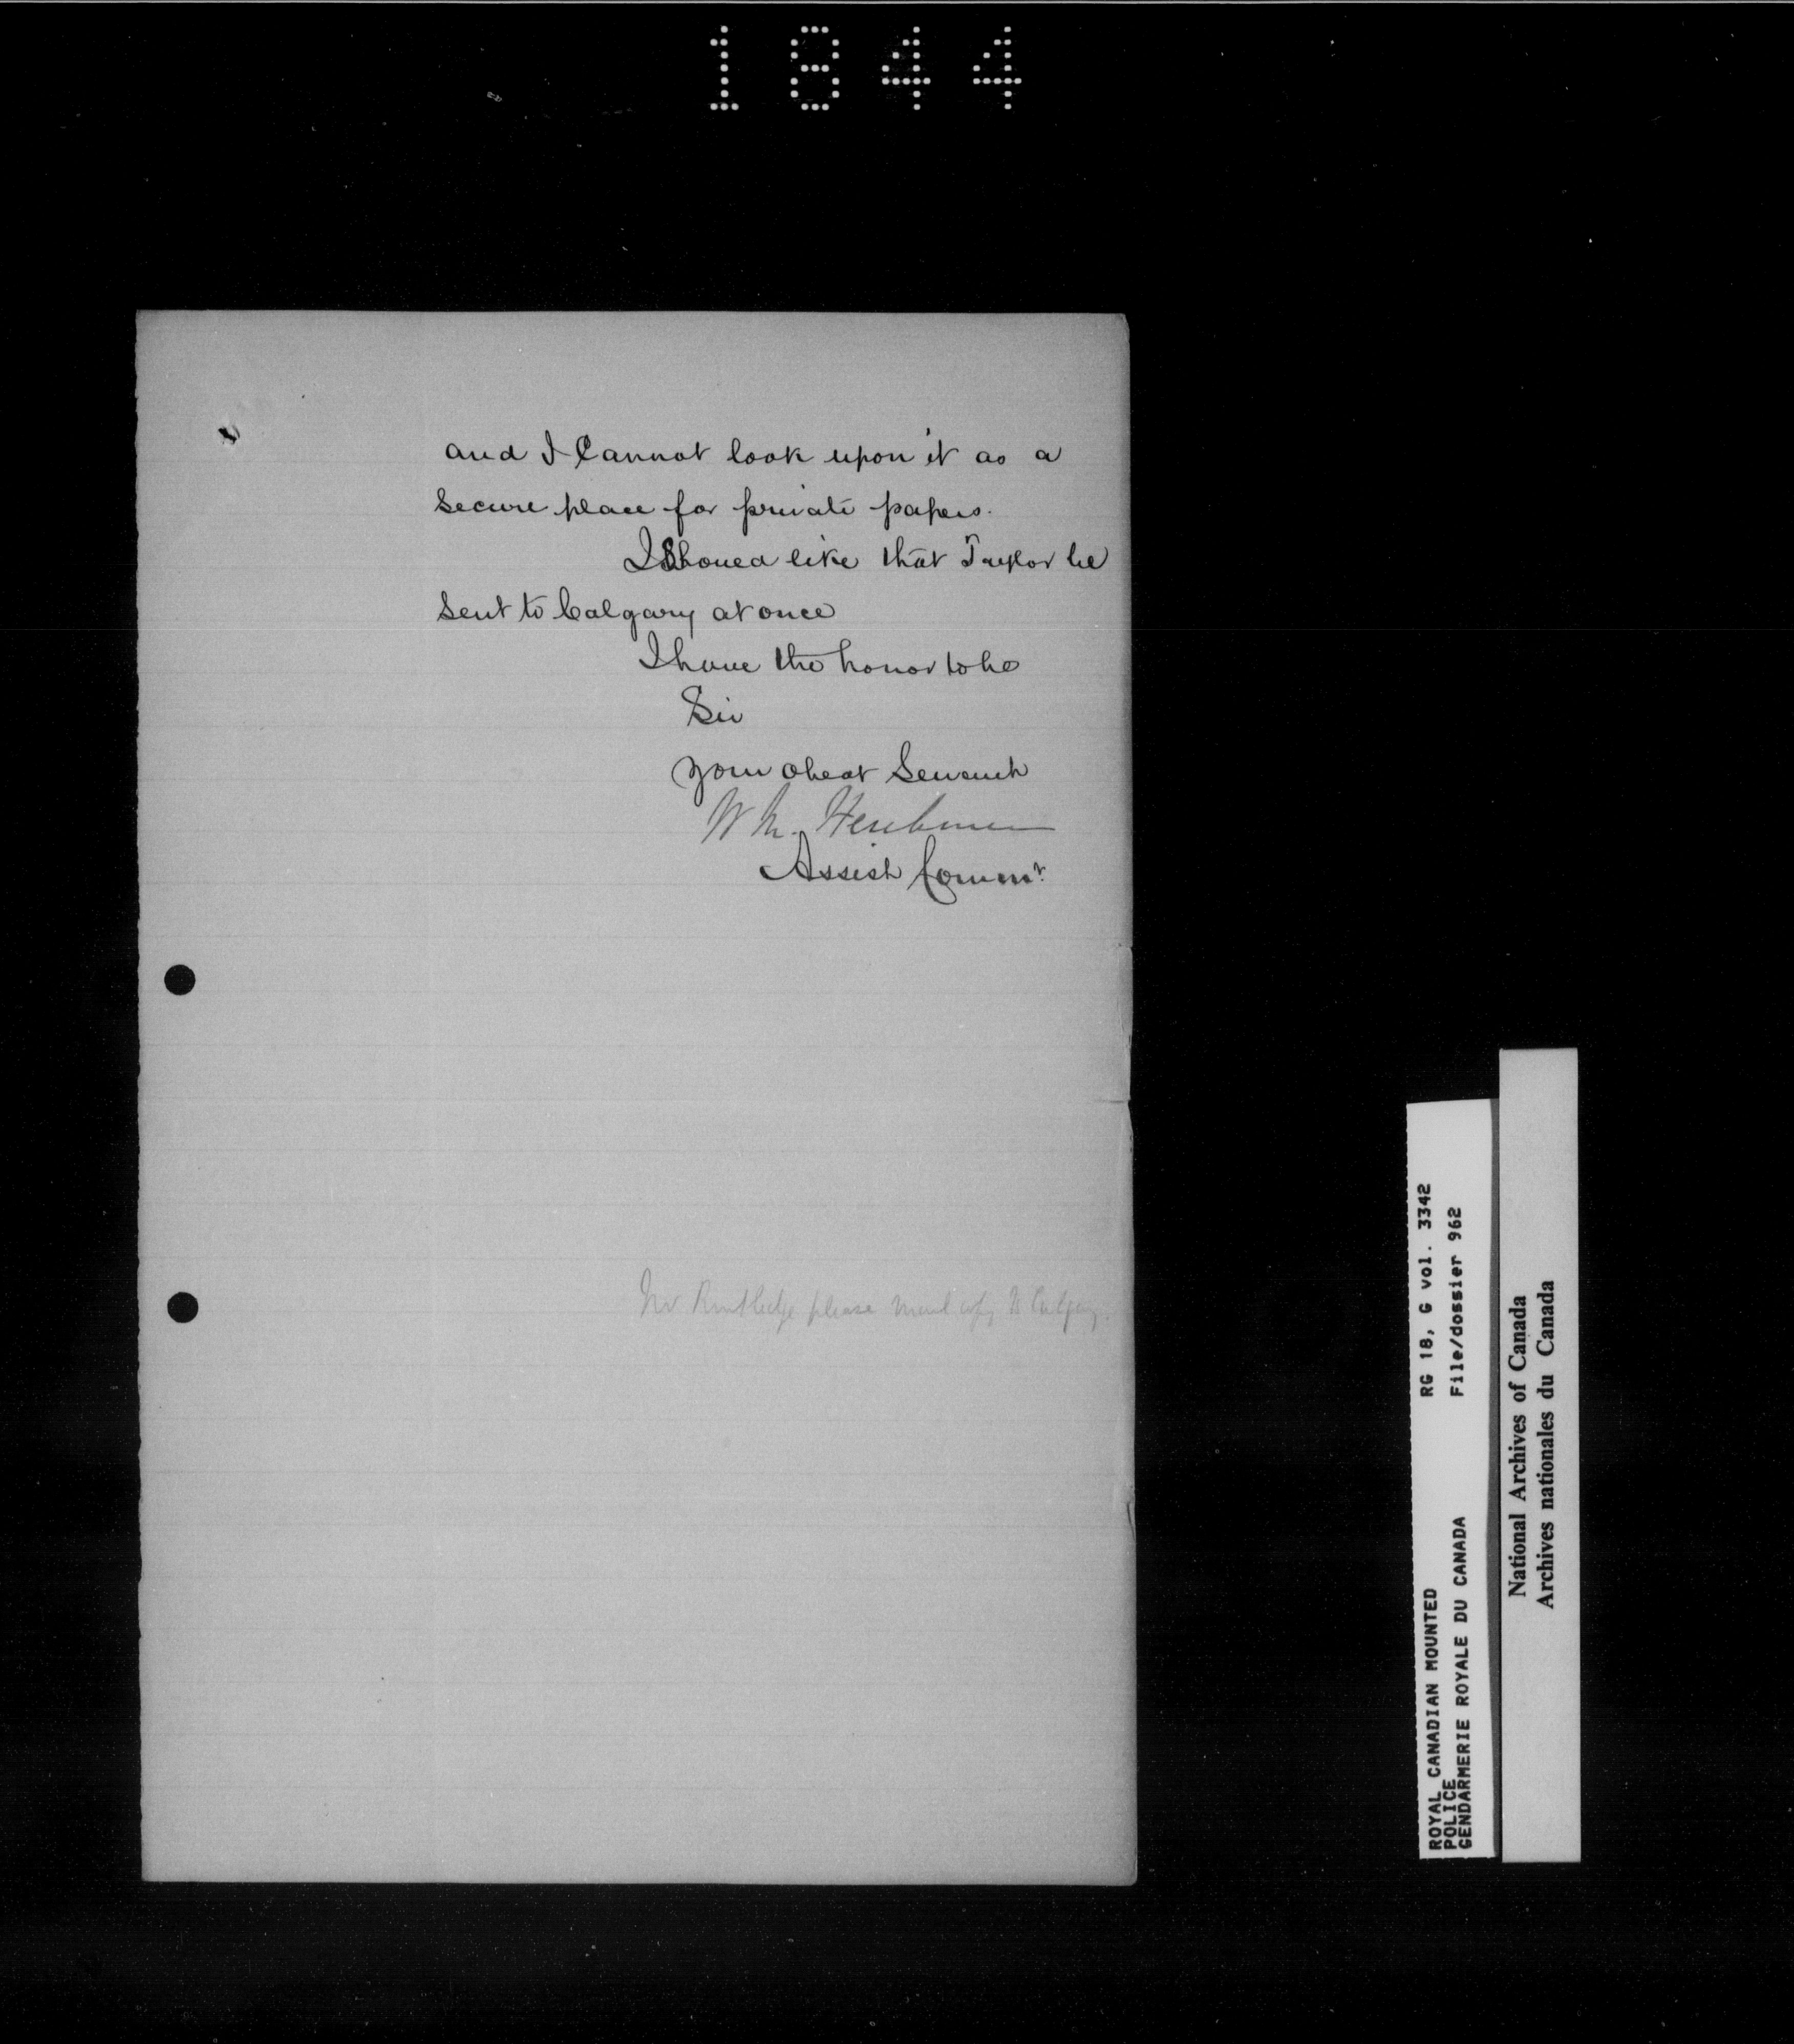 1844
and I Cannot look upon it as a
Secure place for private papers.
I Should like that Taylor be
Sent to Calgary at once
I have the honor to be
Sir
your obedt Servant
W M. Herchmer
Assist Commr.
Mr Routledge please mail copy to Calgary.
RG 18, G vol. 3342
File/dossier 962
ROYAL CANADIAN MOUNTED
POLICE
GENDARMERIE ROYALE DU CANADA
National Archives of Canada
Archives nationales du Canada